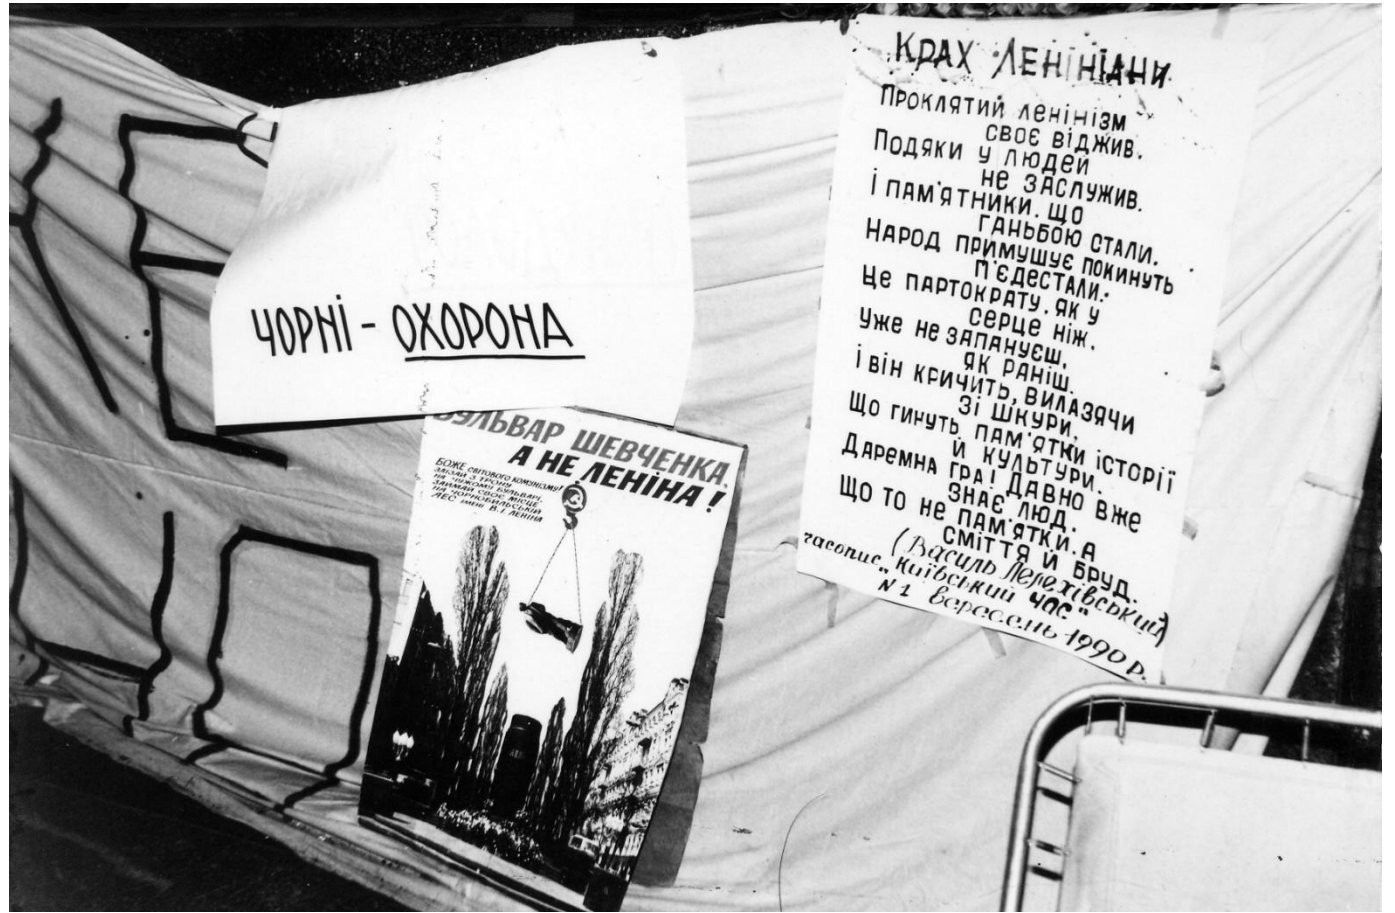 ЧОРНІ - ОХОРОНА
БУЛЬВАР ШЕВЧЕНКА,
А НЕ ЛЕНІНА!
БОЖЕ СВІТОВОГО КОМУНІЗМУ!
ЗЛІЗАЙ З ТРОНУ
НА ЧУЖОМУ БУЛЬВАРІ.
ЗАЙМАЙ СВОЄ МІСЦЕ
НА ЧОРНОБИЛЬСЬКІЙ
АЕС ІМЕНІ В.І. ЛЕНІНА
КРАХ ЛЕНІНІАНИ
ПРОКЛЯТИЙ ЛЕНІНІЗМ
СВОЄ ВІДЖИВ.
ПОДЯКИ У ЛЮДЕЙ
НЕ ЗАСЛУЖИВ.
І ПАМ'ЯТНИКИ, ЩО
ГАНЬБОЮ СТАЛИ.
НАРОД ПРИМУШУЄ ПОКИНУТЬ
П'ЄДЕСТАЛИ.
ЦЕ ПАРТОКРАТУ, ЯК У
СЕРЦЕ НІЖ.
УЖЕ НЕ ЗАПАНУЄШ,
ЯК РАНІШ.
І ВІН КРИЧИТЬ, ВИЛАЗЯЧИ
ЗІ ШКУРИ,
ЩО ГИНУТЬ ПАМ'ЯТКИ ІСТОРІЇ
Й КУЛЬТУРИ.
ДАРЕМНА ГРА! ДАВНО ВЖЕ
ЗНАЄ ЛЮД.
ЩО ТО НЕ ПАМ'ЯТКИ, А
СМІТТЯ Й БРУД.
(Василь Перехівський)
часопис „Київський час"
N 1 вересень 1990 р.